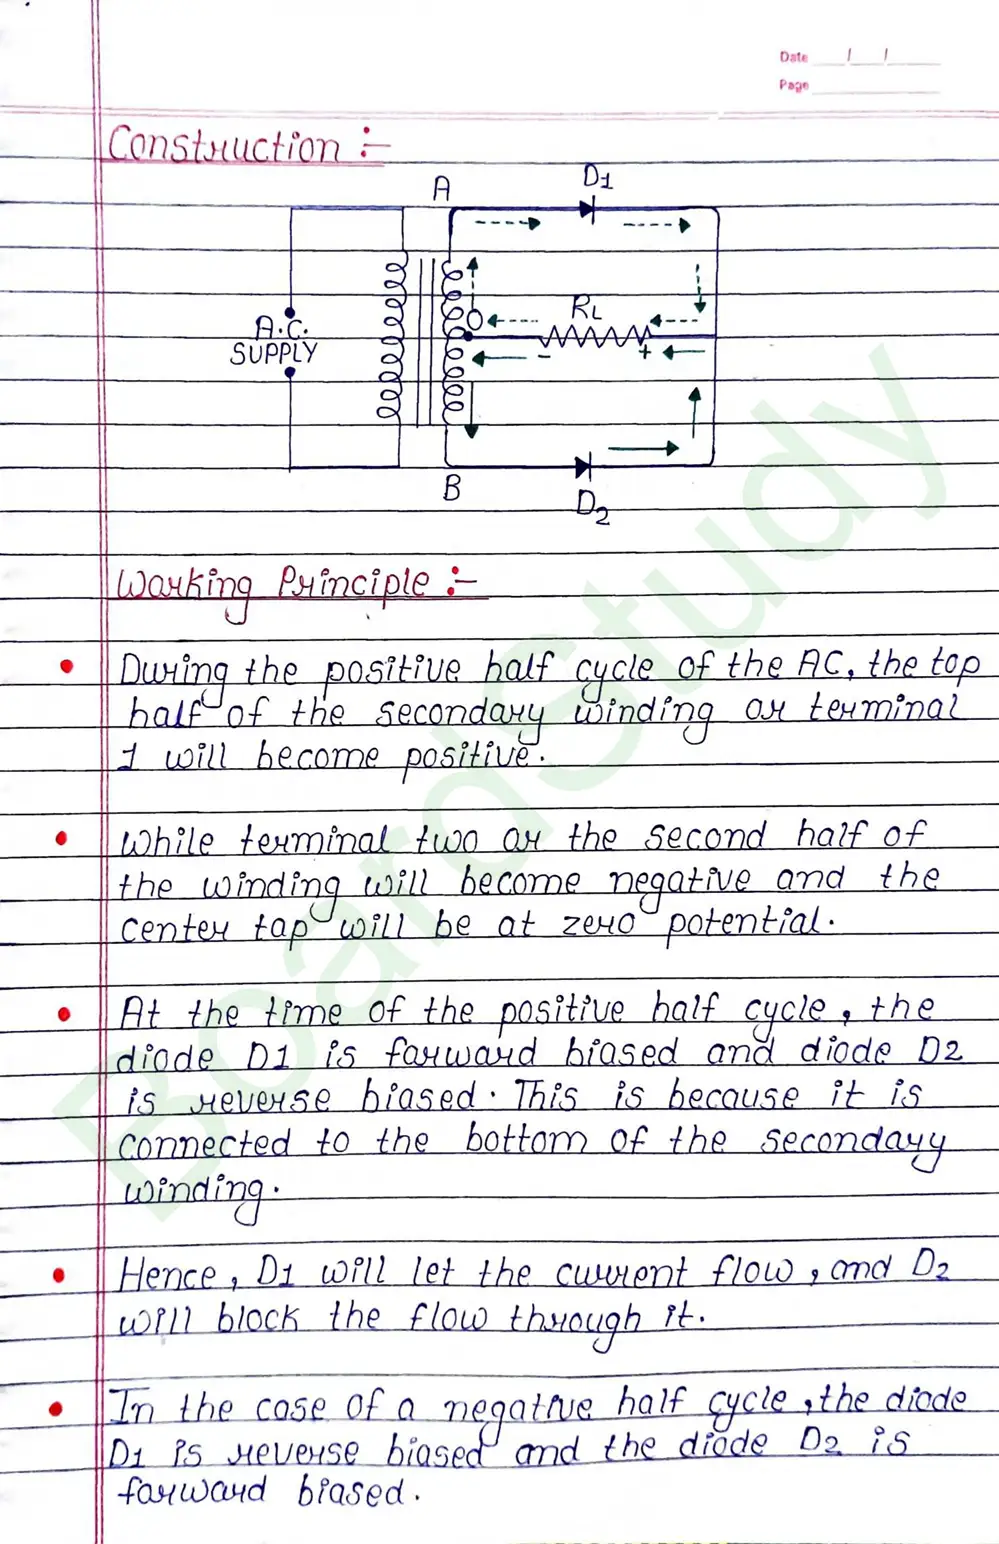 Date / /
Page
Construction :-
A
D1
RL
A.C.
SUPPLY
- +
B
D2
Working Principle :-
• During the positive half cycle of the AC, the top
half of the secondary winding or terminal
1 will become positive.
• While terminal two or the second half of
the winding will become negative and the
center tap will be at zero potential.
• At the time of the positive half cycle, the
diode D1 is forward biased and diode D2
is reverse biased. This is because it is
connected to the bottom of the secondary
winding.
• Hence, D1 will let the current flow, and D2
will block the flow through it.
• In the case of a negative half cycle, the diode
D1 is reverse biased and the diode D2 is
forward biased.
BoardStudy